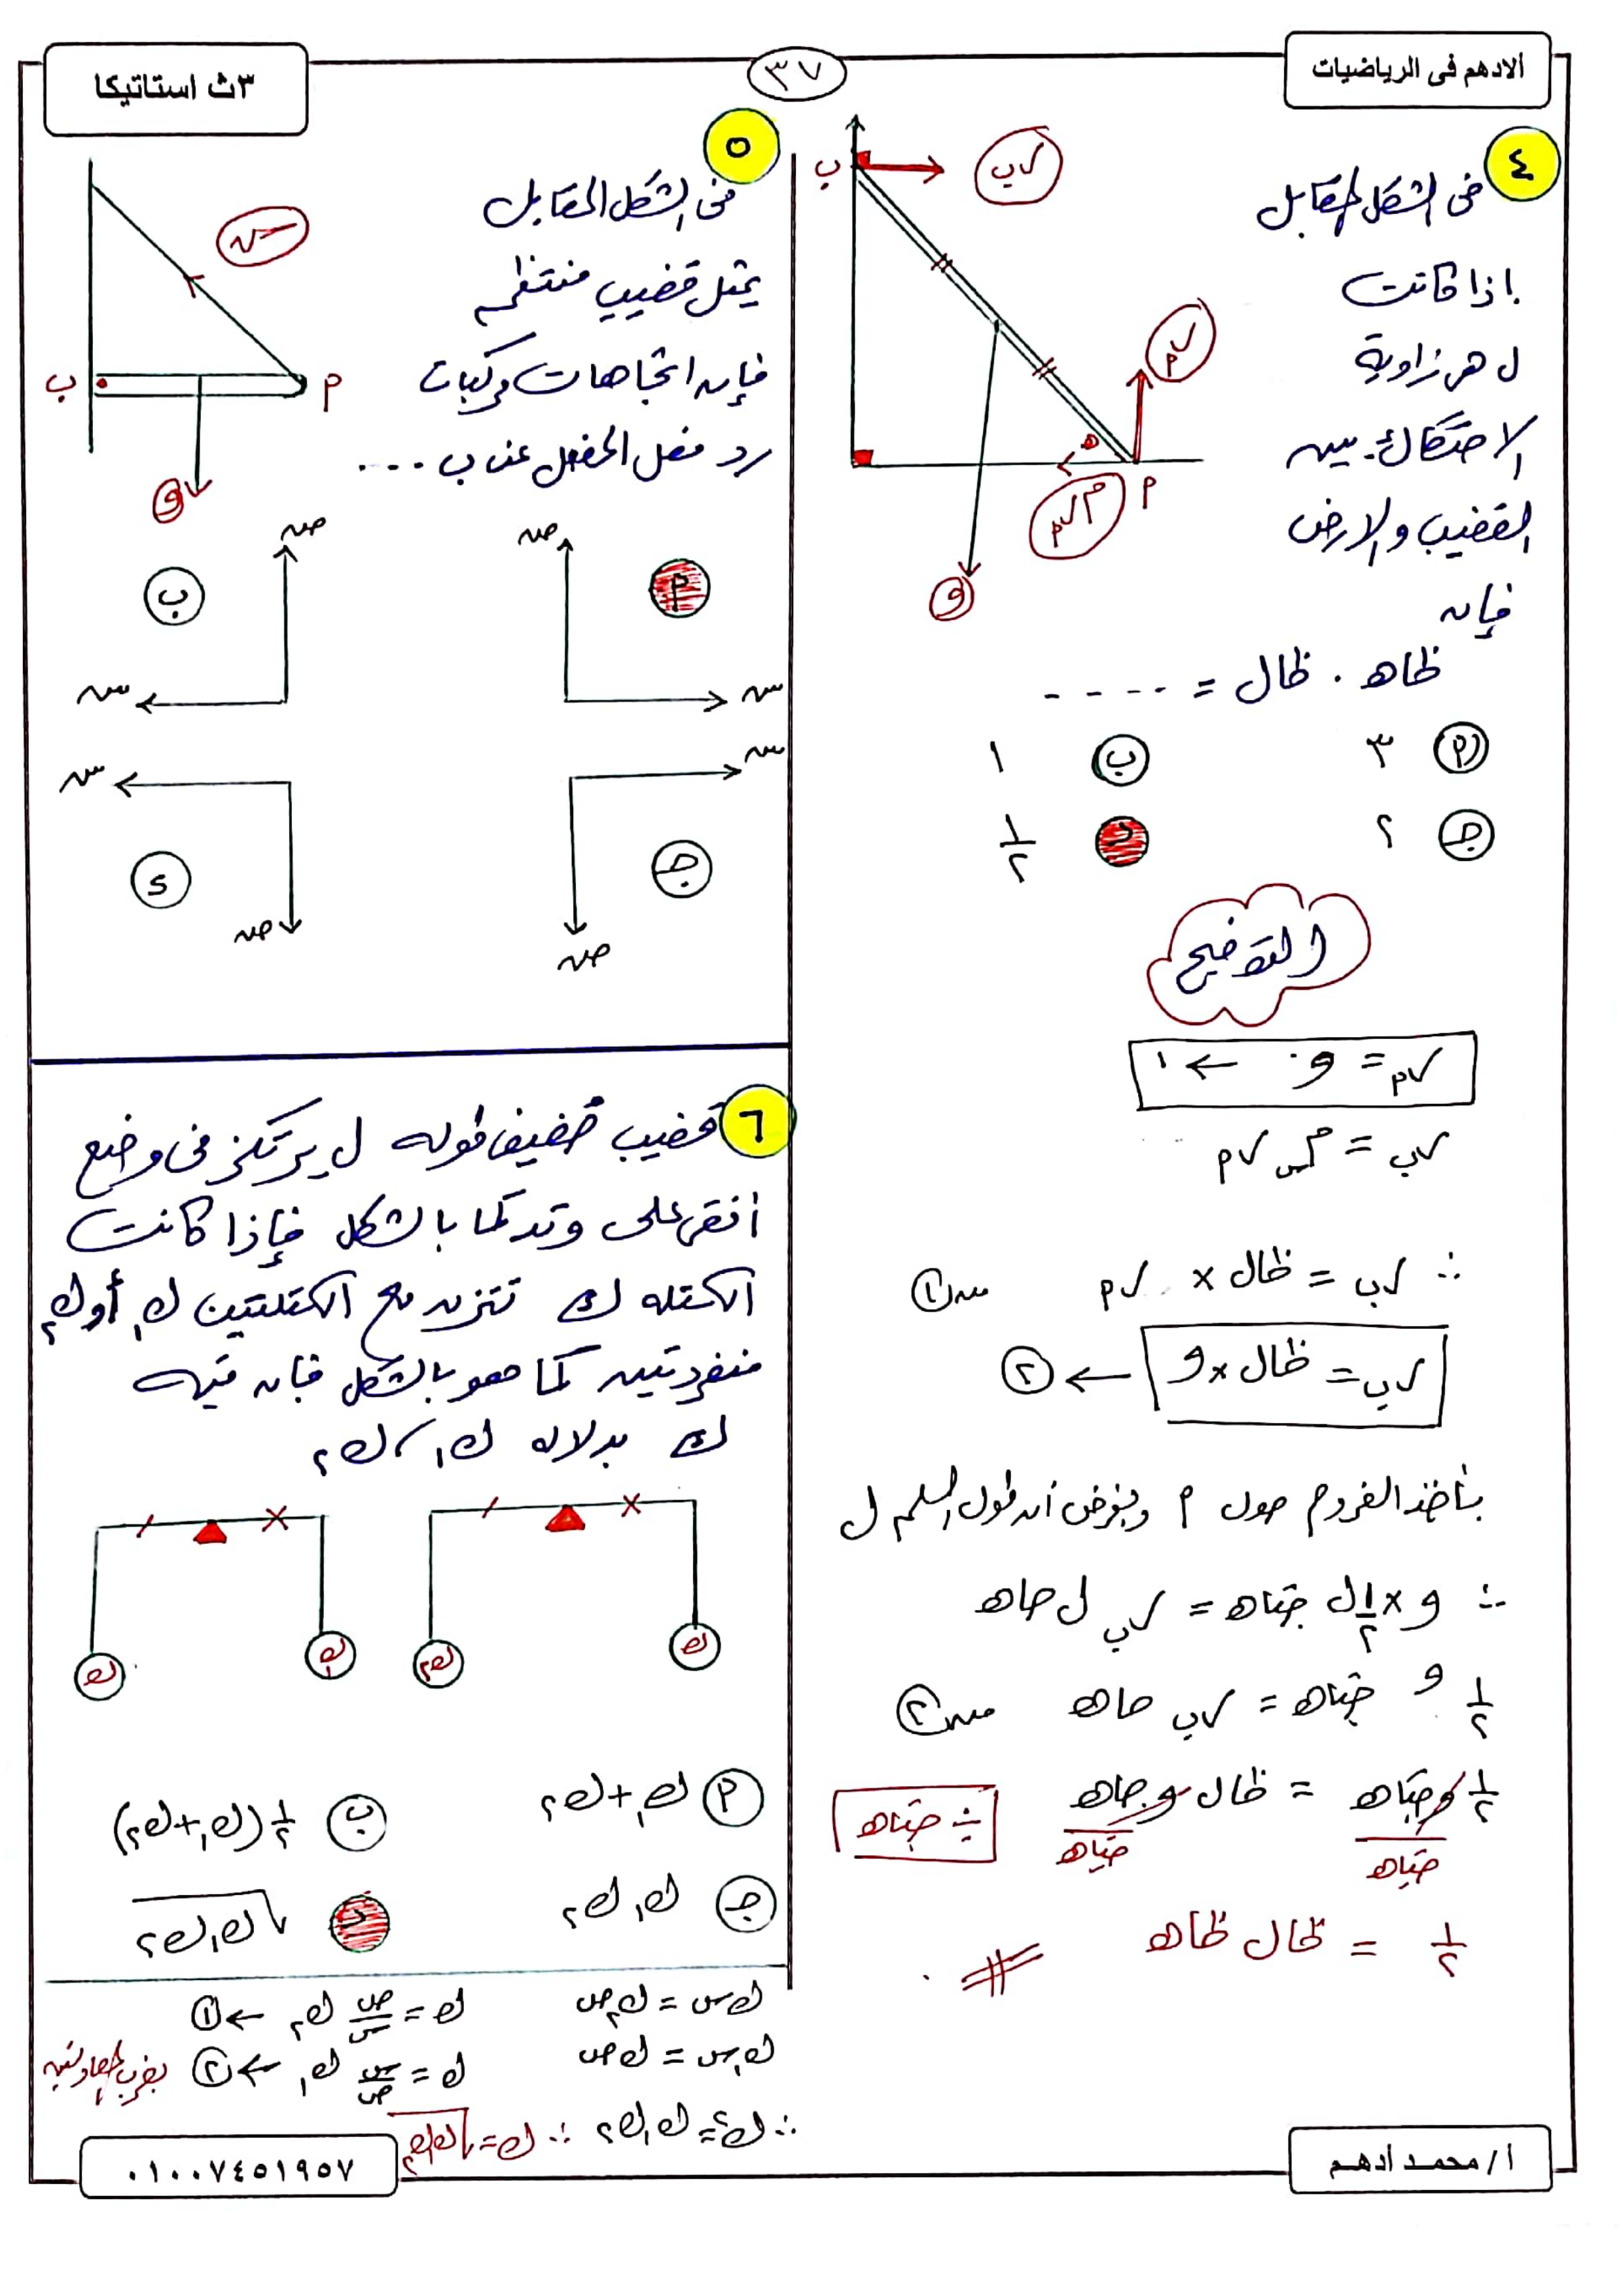 ألادهم فى الرياضيات
٣٧
٣ث استاتيكا
٤
فى الشكل المقابل
اذا كانت
ل هى زاوية
الاحتكاك بين
القضيب والارض
فإن
ظاهـ . ظال = - - - -
أ ٣
ب ١
جـ ٢
د ١/٢
ب
رب
رأ
م رأ
هـ
أ
و
التوضيح
رأ = و ← ١
رب = مس رأ
∴ رب = ظال × رأ من ①
رب = ظال × و ← ②
بأخذ العزوم حول أ وبفرض أن طول السلم ل
∴ و × ١/٢ ل جتاهـ = رب ل جاهـ
١/٢ و جتاهـ = رب جاهـ من ②
١/٢ و جتاهـ / جتاهـ = ظال و جاهـ / جتاهـ ÷ جتاهـ
١/٢ = ظال ظاهـ #
٥
فى الشكل المقابل
يمثل قضيب منتظم
فإن اتجاهات مركبات
رد فعل المفصل عند ب ....
ب
أ
و
أ
س
ص
ب
س
ص
جـ
س
ص
د
س
ص
٦
قضيب خفيف طوله ل يرتكز فى وضع
أفقى على وتد كما بالشكل فإذا كانت
الكتله ك تتزن مع الكتلتين ك١ أو ك٢
منفردتين كما هو بالشكل فإن قيمه
ك بدلاله ك١، ك٢
ك
ك١
ك٢
ك
أ ك١ + ك٢
ب ١/٢ (ك١ + ك٢)
جـ ك١ ك٢
د √ك١ ك٢
ك س = ك٢ ص
ك = ص/س ك٢ ← ①
ك١ س = ك ص
ك = س/ص ك١ ← ② بضرب المعادلتين
∴ ك² = ك١ ك٢ ∴ ك = √ك١ ك٢
أ / محمد أدهم
٠١٠٠٧٤٥١٩٥٧